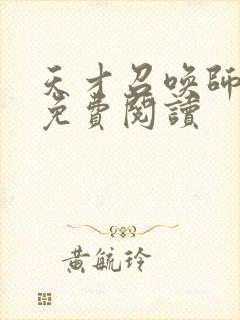 天才召唤師
免費閱讀
黃毓玲